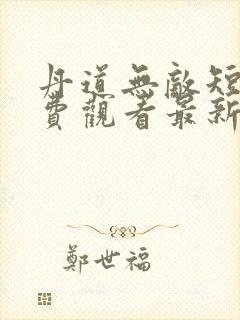 丹道無敵短
費觀看最新
鄭世福